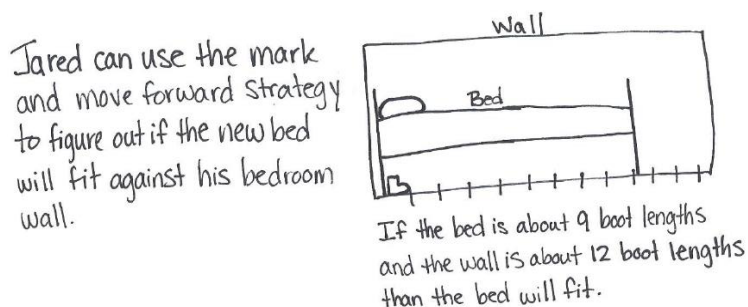 Jared can use the mark
and move forward strategy
to figure out if the new bed
will fit against his bedroom
wall.
Wall
Bed
If the bed is about 9 boot lengths
and the wall is about 12 boot lengths
than the bed will fit.